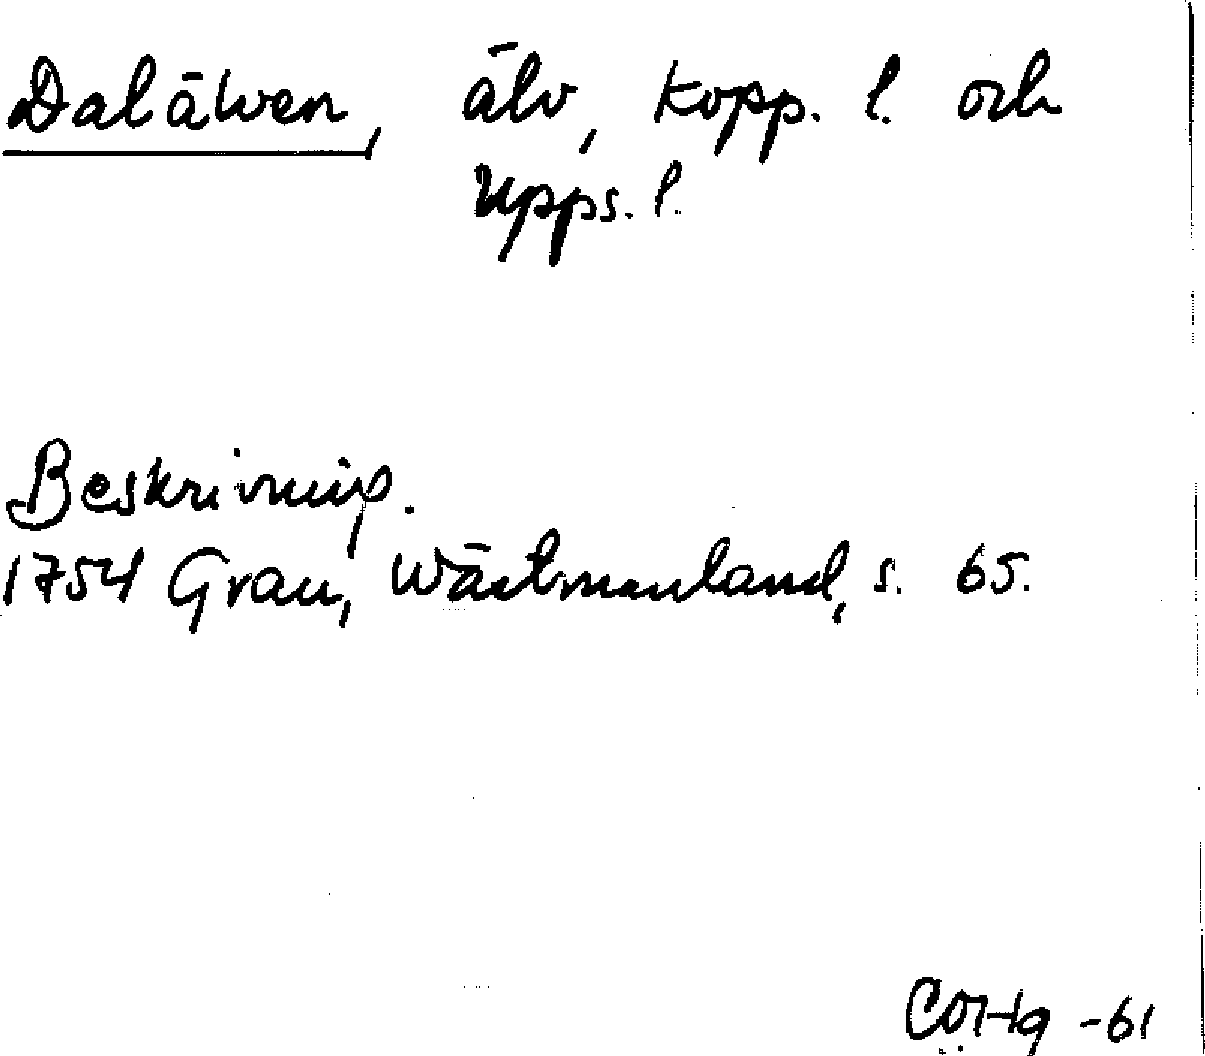 Daläwen, älv, Kopp. l. och
Upps. l.
Beskrivning.
1754 Grau, Wästmanland, s. 65.
-61